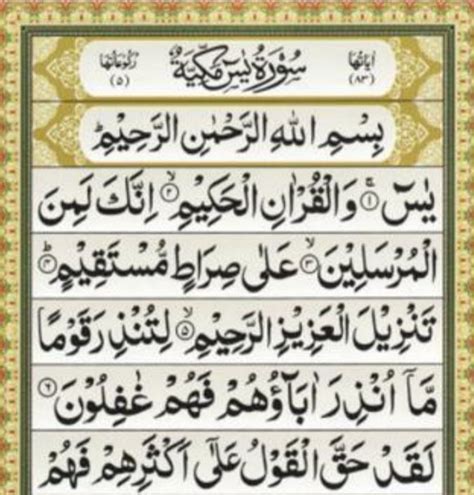 اٰيَاتُهَا (٨٣) سُوْرَةُ يٰسٓ مَكِّيَّةٌ رُكُوْعَاتُهَا (٥)
بِسْمِ اللّٰهِ الرَّحْمٰنِ الرَّحِيْمِ ؕ
يٰسٓ ۚ‏﴿۱﴾ وَالْقُرْاٰنِ الْحَكِيْمِ ۙ‏﴿۲﴾ اِنَّكَ لَمِنَ
الْمُرْسَلِيْنَ ۙ‏﴿۳﴾ عَلٰى صِرَاطٍ مُّسْتَقِيْمٍ ؕ‏﴿۴﴾
تَنْزِيْلَ الْعَزِيْزِ الرَّحِيْمِ ۙ‏﴿۵﴾ لِتُنْذِرَ قَوْمًا
مَّاۤ اُنْذِرَ اٰبَآؤُهُمْ فَهُمْ غٰفِلُوْنَ ‏﴿۶﴾
لَقَدْ حَقَّ الْقَوْلُ عَلٰٓى اَكْثَرِهِمْ فَهُمْ